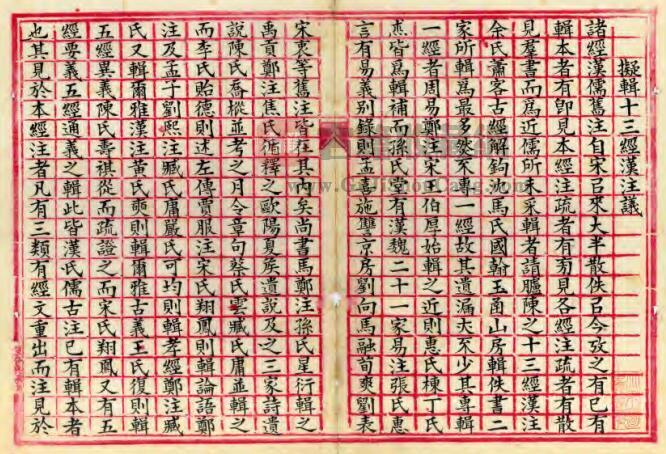 擬輯十三經漢注議
諸經漢儒舊注自宋㠯來大半散佚㠯今攷之有已有
輯本者有卽見本經注疏者有㫄見各經注疏者有散
見羣書而爲近儒所未采輯者請臚陳之十三經漢注
余氏蕭客古經解鉤沈馬氏國翰玉函山房輯佚書二
家所輯爲最多然不專一經故其遺漏夫不少其專輯
一經者周易鄭注宋王伯厚始輯之近則惠氏棟丁氏
杰皆爲輯補而孫氏堂有漢魏二十一家易注張氏惠
言有易義別錄則孟喜施讐京房劉向馬融荀爽劉表
宋衷等舊注皆在其內矣尚書馬鄭注孫氏星衍輯之
禹貢鄭注焦氏循釋之歐陽夏矦遺說及之三家詩遺
說陳氏喬樅並考之月令章句蔡氏雲臧氏庸並輯之
而李氏貽德則述左傳賈服注宋氏翔鳳則輯論語鄭
注及孟子劉熙注臧氏庸嚴氏可均則輯孝經鄭注臧
氏又輯爾雅漢注黃氏奭則輯爾雅古義王氏復則輯
五經異義陳氏壽祺從而疏證之而宋氏翔鳳又有五
經要義五經通義之輯此皆漢氏儒古注已有輯本者
也其見於本經注者凡有三類有經文重出而注見於
www.GujiShouCang.com